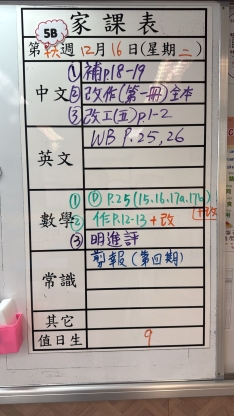 5B
家課表
第 週 12月16日(星期二)
中文
① 補P.18-19
② 改作(第一冊)全本
③ 改工(五)P.1-2
英文
WB P.25,26
數學
① D P.25(15.16.17a.17b)
+改
② 作P.12-13+改
③ 明進評
常識
剪報(第四期)
其它
值日生
9